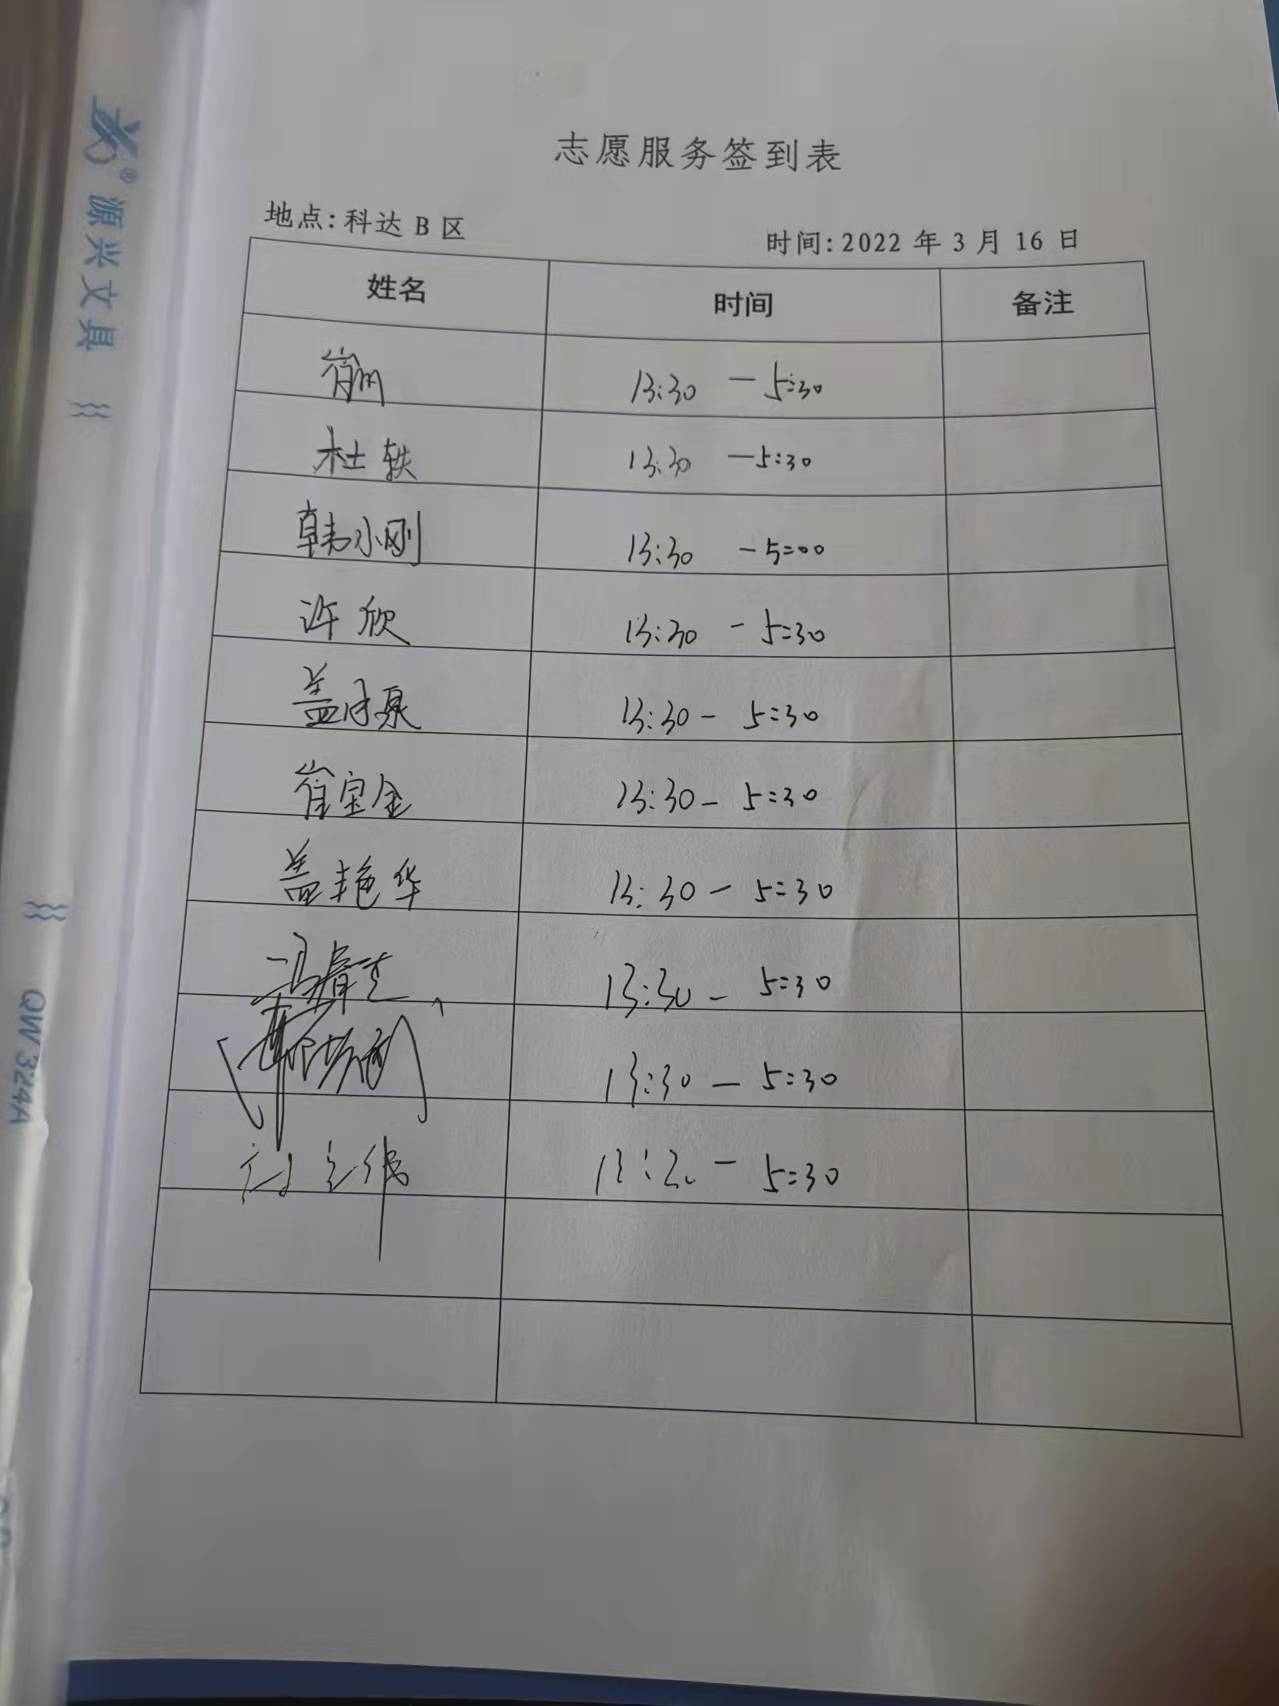 志愿服务签到表
地点:科达 B 区
时间:2022 年 3 月 16 日
姓名 时间 备注
13:30 — 5:30
杜轶 13:30 — 5:30
韩小刚 13:30 - 5:00
许欣 13:30 - 5:30
盖 泉 13:30 - 5:30
崔宝金 13:30 - 5:30
盖艳华 13:30 - 5:30
冯春 13:30 - 5:30
13:30 — 5:30
5:30
源兴文具
QW 324A